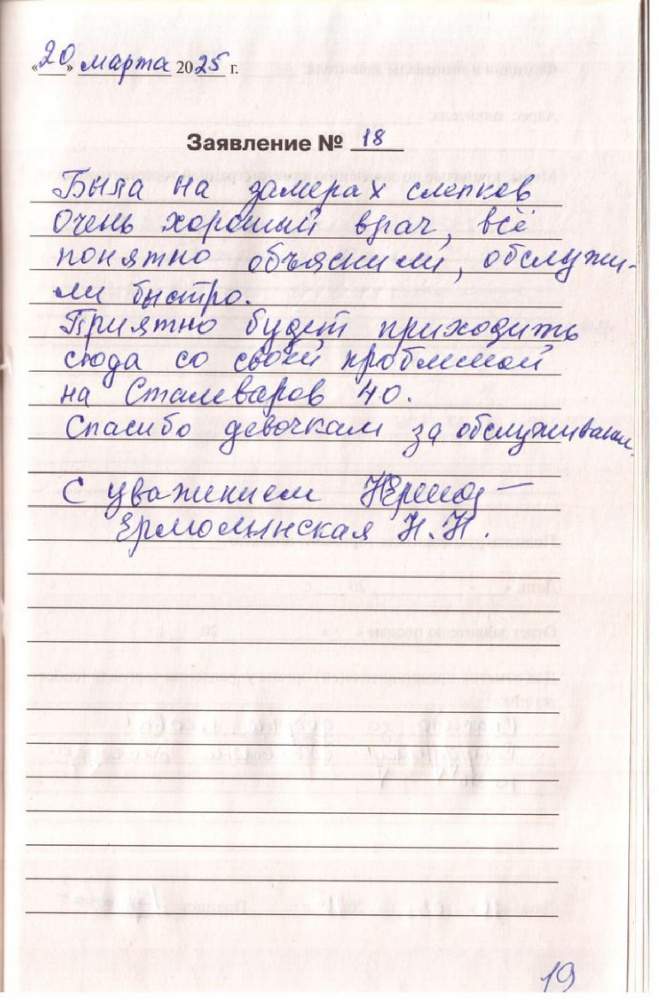 «20» марта 2025 г.
Заявление № 18
Была на замерах слепков
очень хороший врач, всё
понятно объяснили, обслужи-
ли быстро.
Приятно будет приходить
сюда со своей проблемой
на Сталеваров 40.
Спасибо девочкам за обслуживание.
С уважением
Ермолинская Н.Н.
19